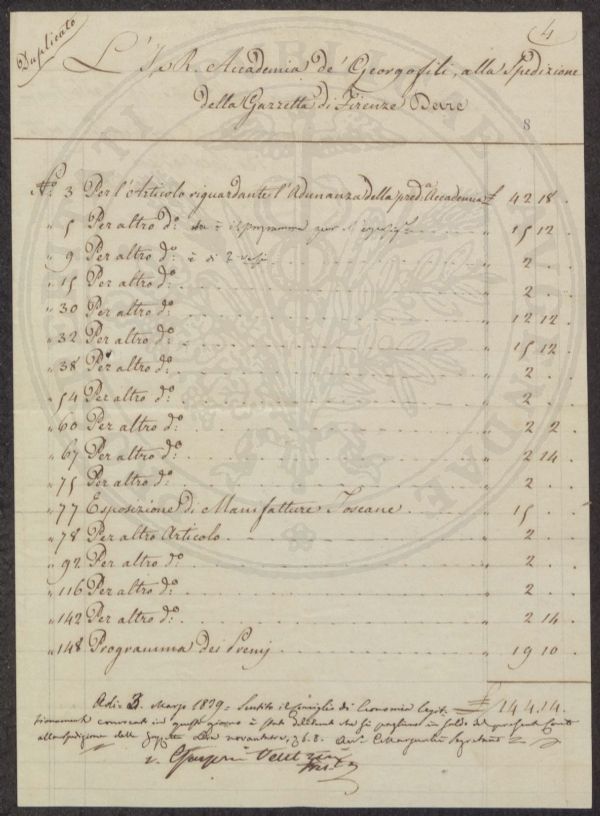 Duplicato
4
L'I. e R. Accademia de' Georgofili, alla Spedizione
della Gazzetta di Firenze Deve
8
N.o 3 Per l'Articolo riguardante l'Adunanza della pred.a Accademia £ 42 18 .
" 5 Per altro d.o 15 12 .
" 9 Per altro d.o è di " 2 . .
" 15 Per altro d.o " 2 . .
" 30 Per altro d.o " 12 12 .
" 32 Per altro d.o " 15 12 .
" 38 Per altro d.o " 2 . .
" 54 Per altro d.o " 2 . .
" 60 Per altro d.o " 2 2 .
" 67 Per altro d.o " 2 14 .
" 75 Per altro d.o " 2 . .
" 77 Esposizione di Manifatture Toscane " 15 . .
" 78 Per altro Articolo " 2 . .
" 92 Per altro d.o " 2 . .
" 116 Per altro d.o " 2 . .
" 142 Per altro d.o " 2 14 .
" 148 Programma dei Premj 19 10 .
Adì 3 Marzo 1839 = Sentito il Consiglio di Economia £ 144.14.
convocato in questo giorno è stato che si paghino in saldo del presente Conto
alla Spedizione della Gazzetta Lire novantasei, 6.8.